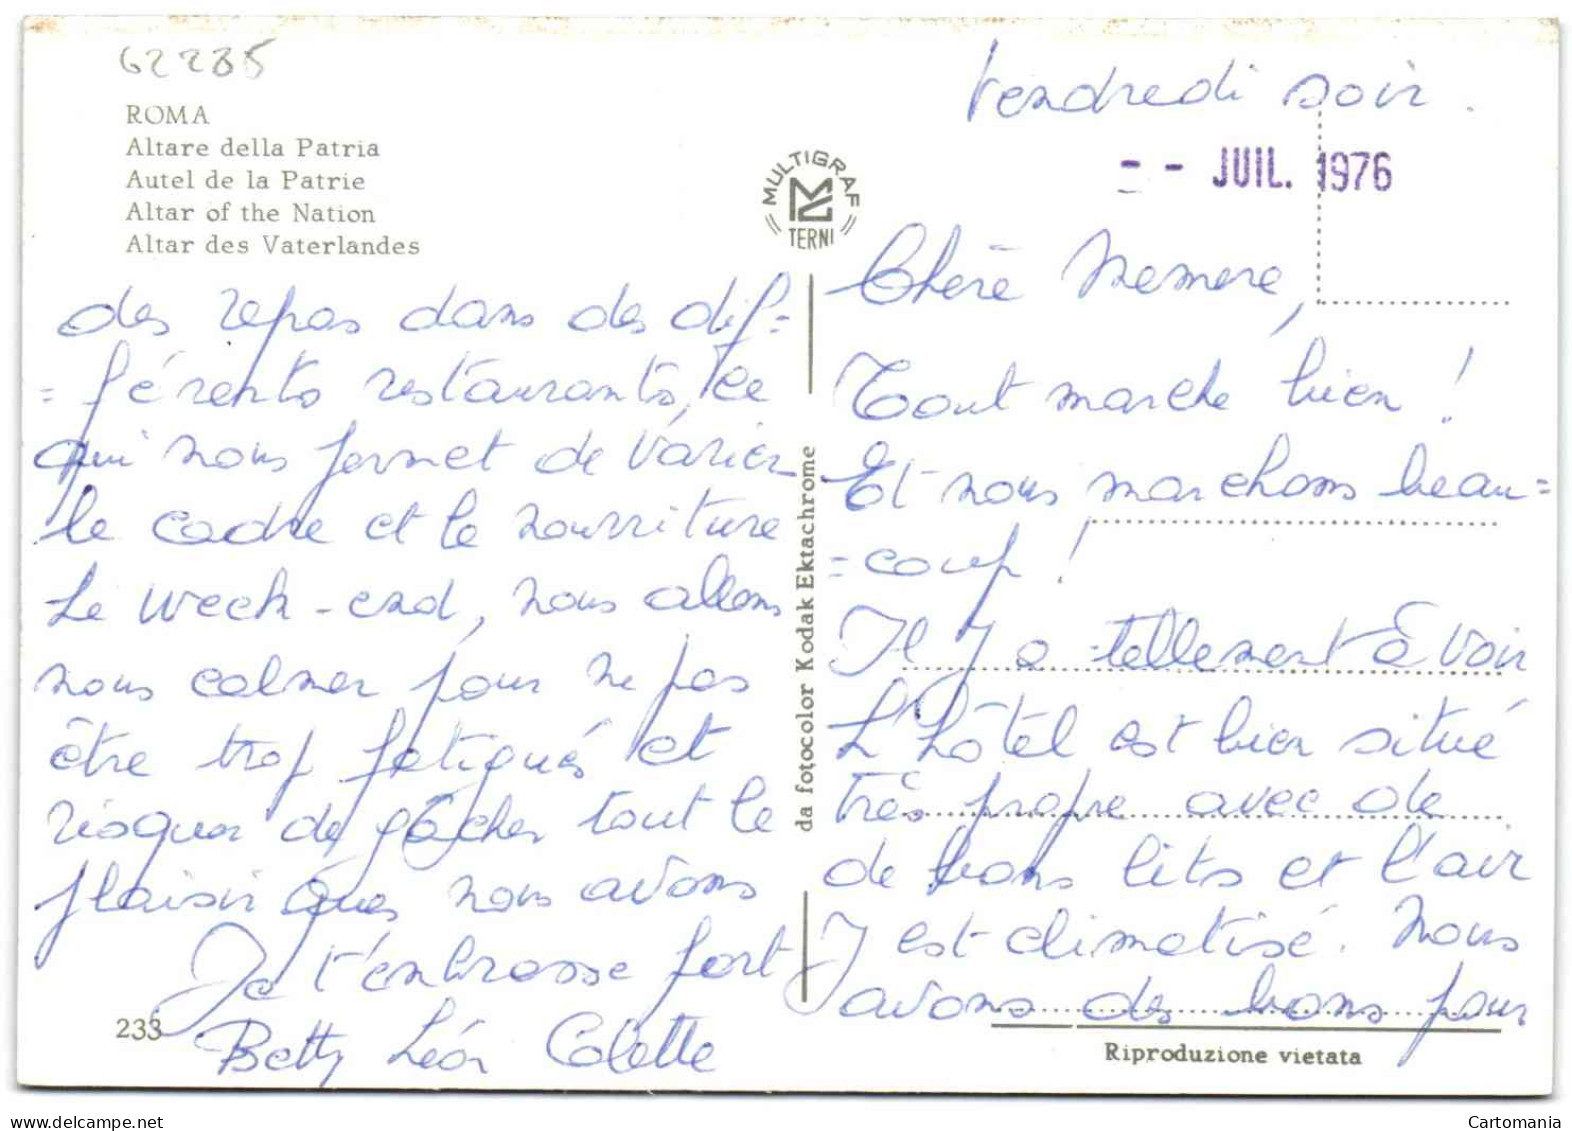 62285
ROMA
Altare della Patria
Autel de la Patrie
Altar of the Nation
Altar des Vaterlandes
MULTIGRAF
TERNI
Vendredi soir.
- - JUIL. 1976
Chère Memere,
Tout marche bien !
Et nous marchons beau=
=coup !
Il y a tellement à voir
L'hôtel est bien situé
très propre avec de
de bons lits et l'air
y est climatisé. Nous
avons des bons pour
des repas dans des dif=
=férents restaurants, ce
qui nous permet de varier
le cadre et la nourriture
Le week-end, nous allons
nous calmer pour ne pas
être trop fatigués et
risquer de gâcher tout le
plaisir que nous avons
Je t'embrasse fort
Betty Léon Colette
233
da fotocolor Kodak Ektachrome
Riproduzione vietata
Cartomania